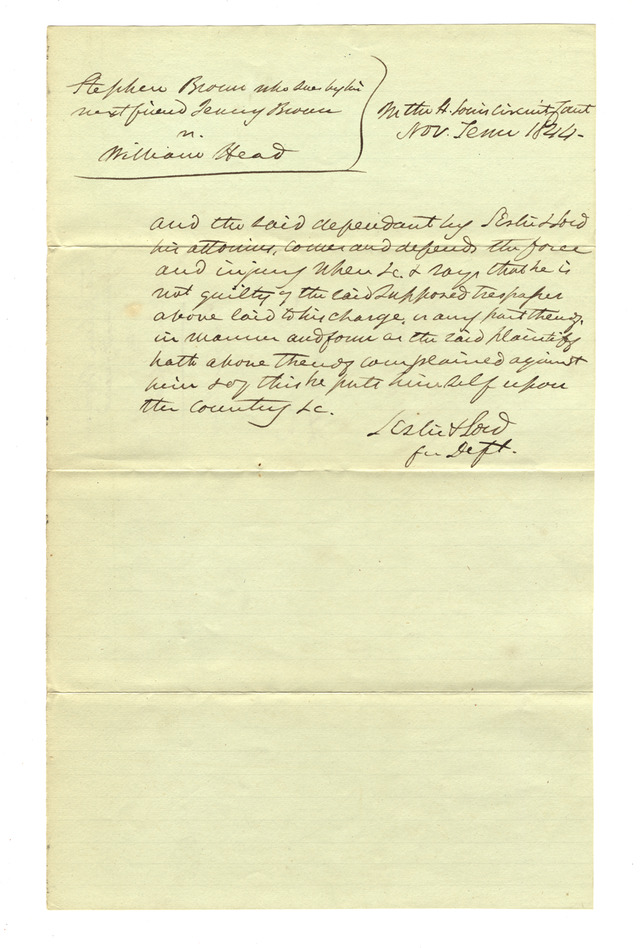 Stephen Brown who sues by his
next friend Jenny Brown
vs.
William Head
In the St. Louis Circuit Court
Nov. Term 1844-
and the said dependant by Leslie & Lord
his attornies, comes and defends the force
and injury when &c. & says that he is
not guilty of the said supposed trespasses
above laid to his charge, or any part thereof,
in manner and form as the said plaintiff
hath above thereof complained against
him & of this he puts himself upon
the country &c.
Leslie & Lord
for Deft.